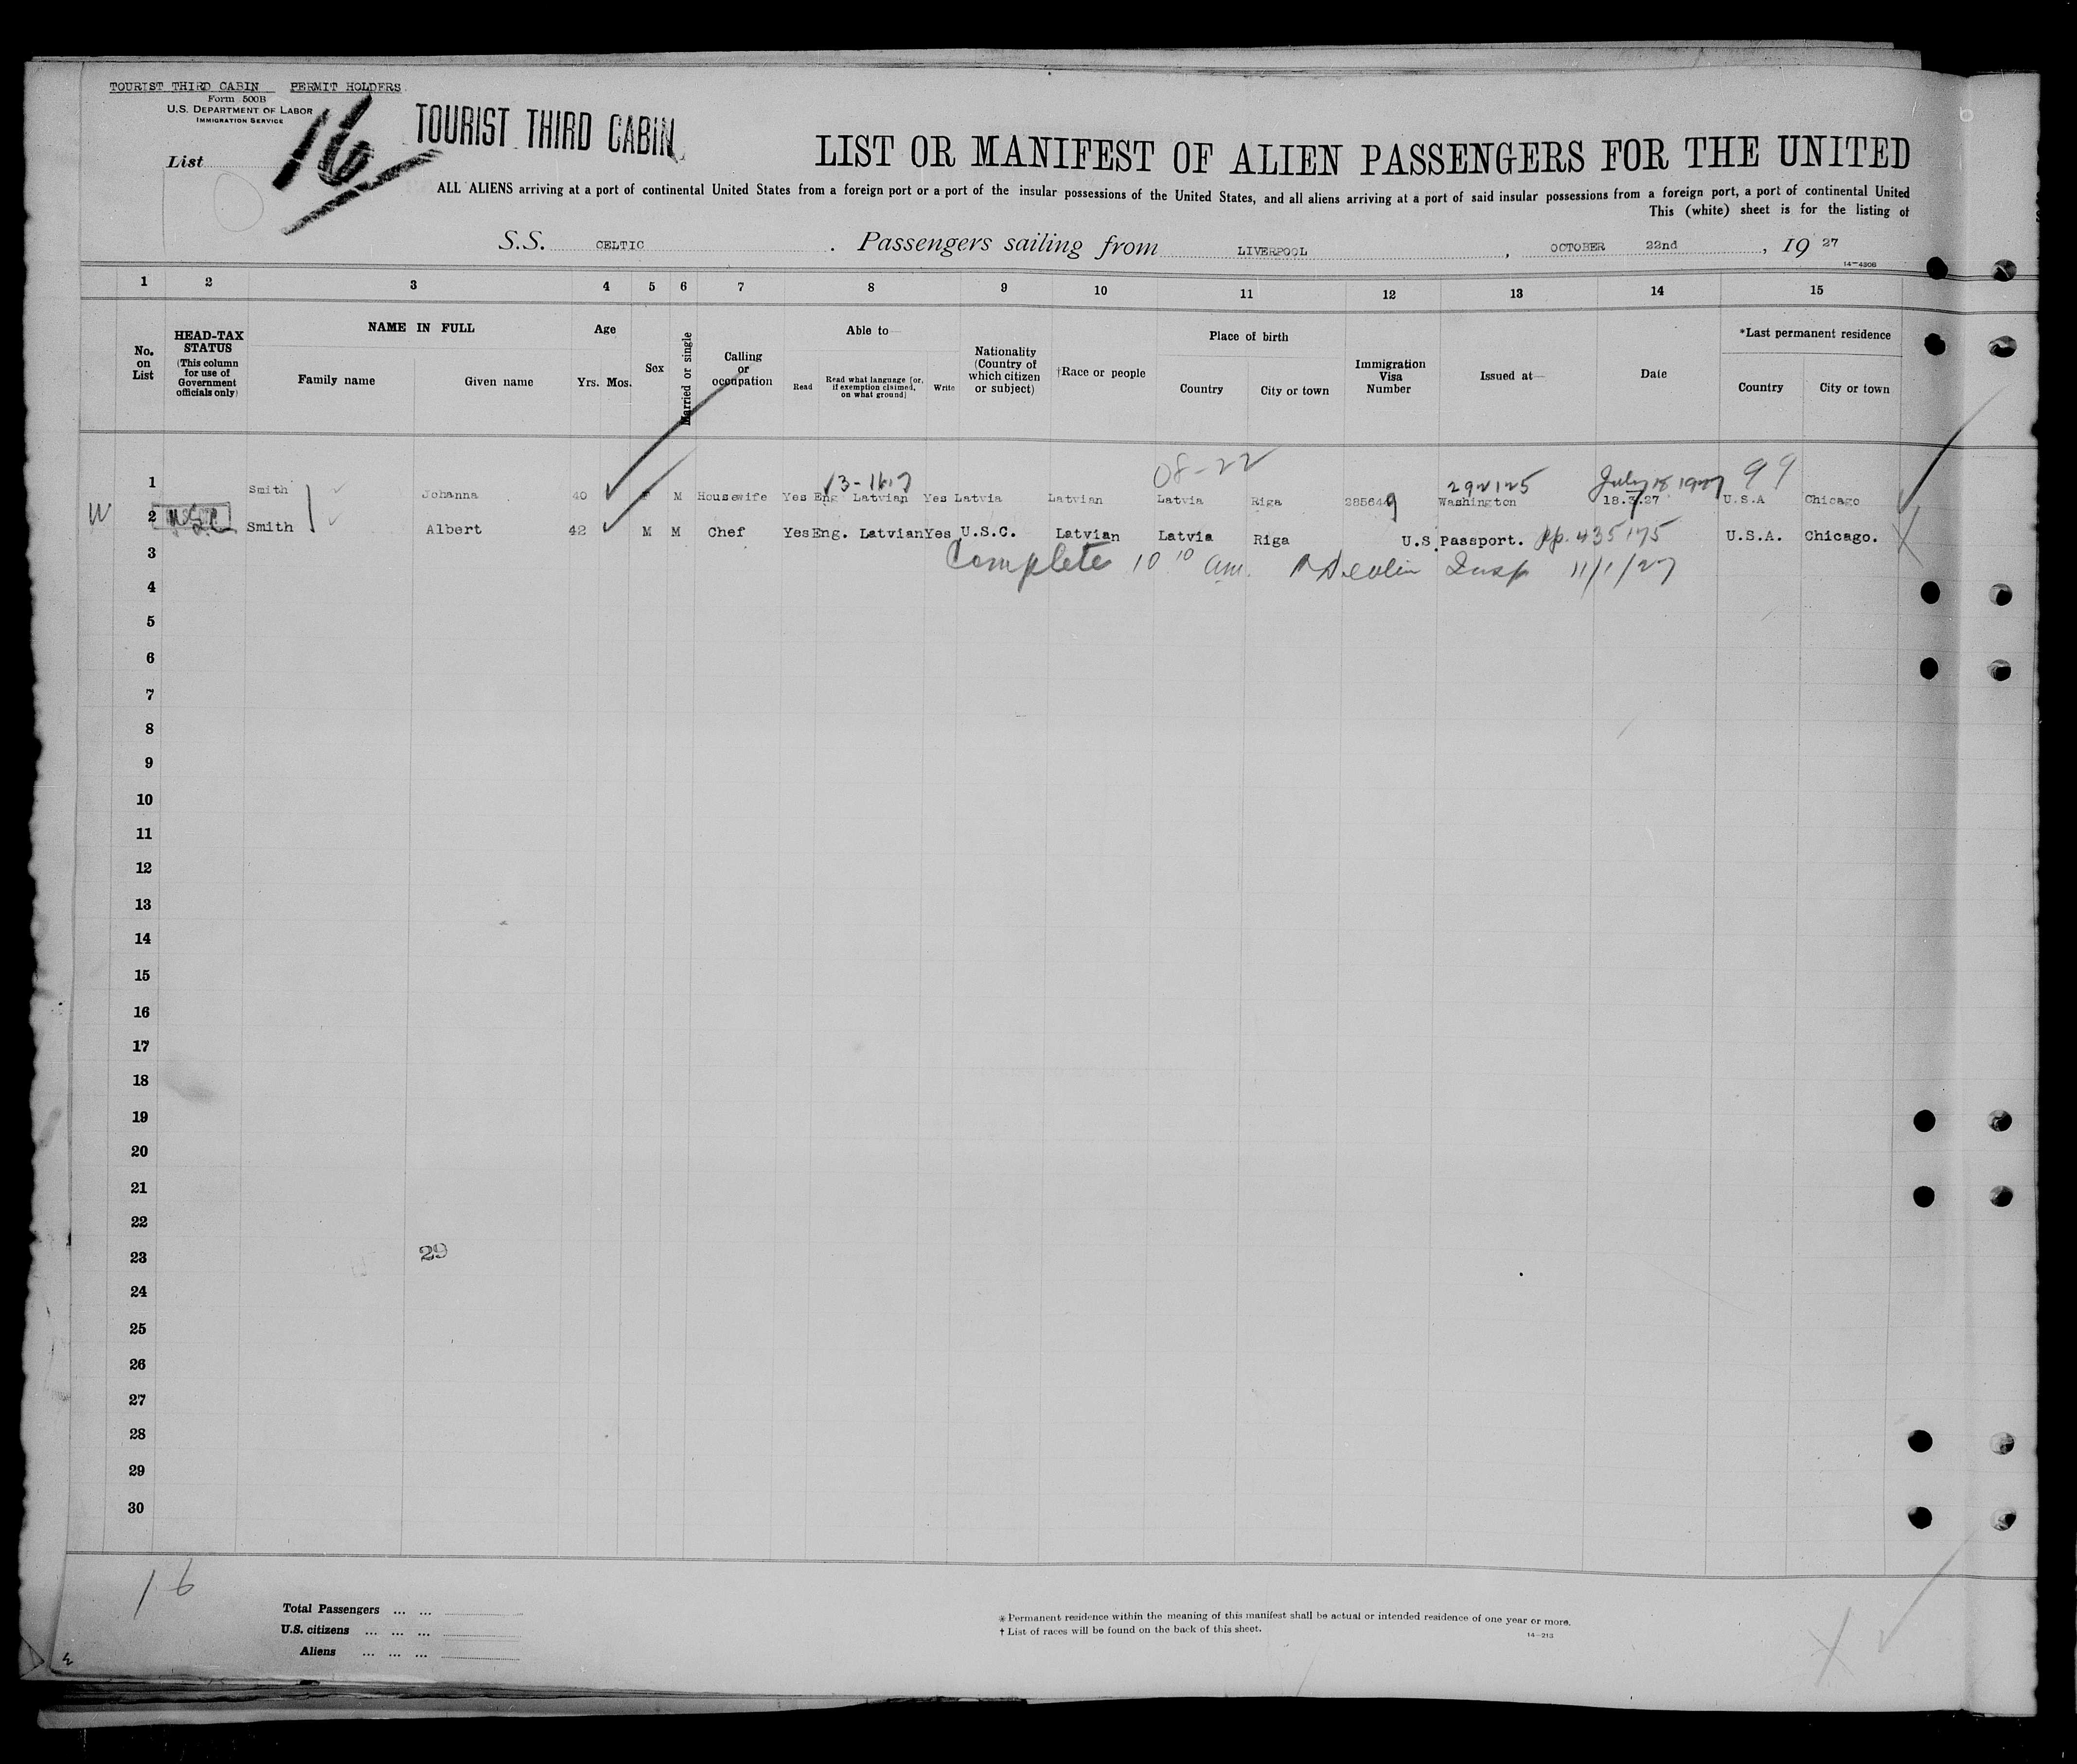 TOURIST THIRD CABIN PERMIT HOLDERS
Form 500B
U.S. DEPARTMENT OF LABOR
IMMIGRATION SERVICE
List 16
TOURIST THIRD CABIN
LIST OR MANIFEST OF ALIEN PASSENGERS FOR THE UNITED
ALL ALIENS arriving at a port of continental United States from a foreign port or a port of the insular possessions of the United States, and all aliens arriving at a port of said insular possessions from a foreign port, a port of continental United
This (white) sheet is for the listing of
S.S. CELTIC . Passengers sailing from LIVERPOOL , OCTOBER 22nd , 19 27
14-4306
1 2 3 4 5 6 7 8 9 10 11 12 13 14 15
No. on List
HEAD-TAX STATUS (This column for use of Government officials only)
NAME IN FULL
Family name Given name
Age
Yrs. Mos.
Sex
Married or single
Calling or occupation
Able to—
Read Read what language [or, if exemption claimed, on what ground] Write
Nationality (Country of which citizen or subject)
†Race or people
Place of birth
Country City or town
Immigration Visa Number
Issued at—
Date
*Last permanent residence
Country City or town
08-22
292125 July 18 1927 99
1 Smith Johanna 40 F M Housewife Yes Eng Latvian Yes Latvia Latvian Latvia Riga 285649 Washington 18.7.27 U.S.A Chicago
W 2 USC Smith Albert 42 M M Chef Yes Eng. Latvian Yes U.S.C. Latvian Latvia Riga U.S. Passport. pp. 435175 U.S.A. Chicago.
3 Complete 10 10 am. Insp 11/1/27
4
5
6
7
8
9
10
11
12
13
14
15
16
17
18
19
20
21
22
23 29
24
25
26
27
28
29
30
16
Total Passengers ... ...
U.S. citizens ... ... ...
Aliens ... ... ...
* Permanent residence within the meaning of this manifest shall be actual or intended residence of one year or more.
† List of races will be found on the back of this sheet.
14-213